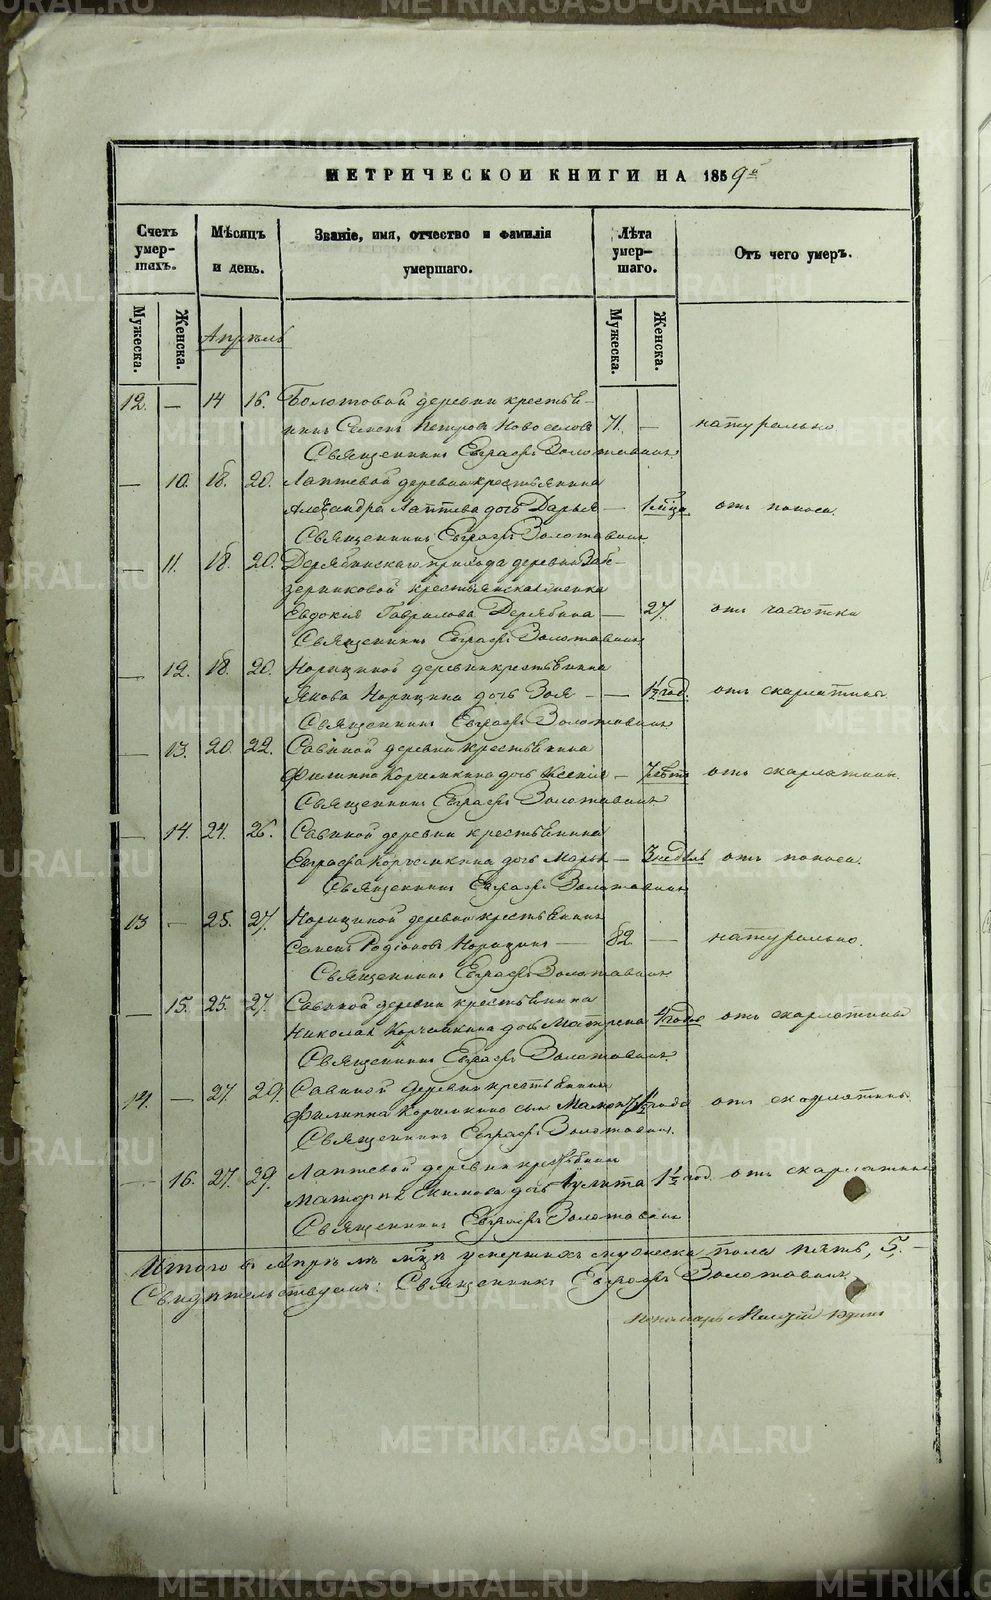 МЕТРИЧЕСКОИ КНИГИ НА 1859й
Счетъ умер- шихъ.
Мѣсяцъ и день.
Званіе, имя, отчество и фамилія умершаго.
Лѣта умер- шаго.
Отъ чего умеръ.
Мужеска.
Женска.
Мужеска.
Женска.
Апрель
12. — 14 16. Болотовой деревни крестья-
нинъ Семенъ Петровъ Новоселовъ 71. — натурально.
Священникъ Евграфъ Золотавинъ
— 10. 18. 20. Лаптевой деревни крестьянина
Александра Лаптева дочь Дарья — 1 мца отъ поноса.
Священникъ Евграфъ Золотавинъ
— 11. 18. 20. Дерябинскаго прихода деревни
крестьянская женка
Евдокия Гаврилова Дерябина — 27. отъ чахотки
Священникъ Евграфъ Золотавинъ
— 12. 18. 20. Норициной деревни крестьянина
Якова Норицина дочь Зоя — — 1½ год. отъ скарлатины
Священникъ Евграфъ Золотавинъ
— 13. 20. 22. Савиной деревни крестьянина
Филиппа Корчемкина дочь Ксения — 7 отъ скарлатины.
Священникъ Евграфъ Золотавинъ
— 14. 24. 26. Савиной деревни крестьянина
Евграфа Корчемкина дочь Марья — 3 недѣль отъ поноса.
Священникъ Евграфъ Золотавинъ
13 — 25. 27. Норициной деревни крестьянинъ
Семенъ Родіоновъ Норицинъ — 82 — натурально.
Священникъ Евграфъ Золотавинъ
— 15. 25. 27. Савиной деревни крестьянина
Николая Корчемкина дочь Матрена 4 годов отъ скарлатины
Священникъ Евграфъ Золотавинъ
14. — 27. 29. Савиной деревни крестьянина
Филиппа Корчемкина сынъ года отъ скарлатины.
Священникъ Евграфъ Золотавинъ.
— 16. 27. 29. Лаптевой деревни крестьянина
Екимова дочь Иулита 1½ год. отъ скарлатины
Священникъ Евграфъ Золотавинъ
Итого в Апрѣлѣ мцѣ умершихъ мужеска пола пять, 5. —
Свидетельствуемъ: Священникъ Евграфъ Золотавинъ
Пономарь